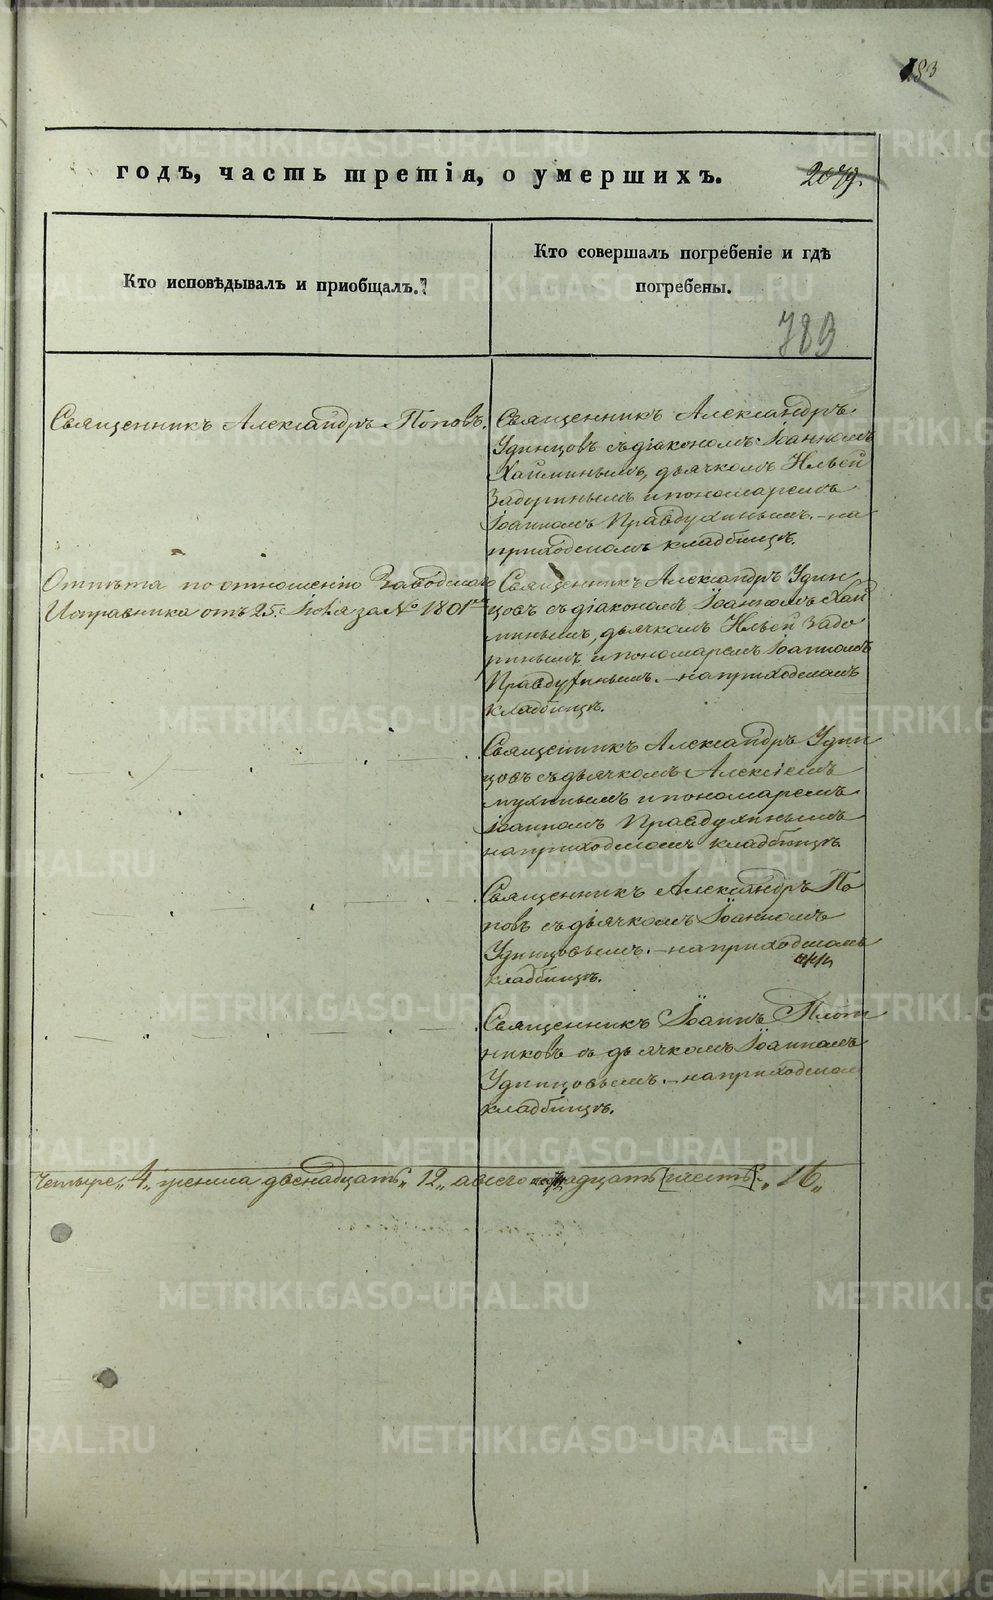 183
годъ, часть третія, о умершихъ.
2079.
Кто исповѣдывалъ и пріобщалъ.
Кто совершалъ погребеніе и гдѣ
погребены.
789
Священникъ Александръ Поповъ.
Священникъ Александръ
Удинцовъ съ діакономъ Іоанномъ
Хайминымъ, дьячкомъ Ильей
Задоринымъ и пономаремъ
Іоанномъ Правдухинымъ. – на
приходскомъ кладбищѣ.
Отпѣта по отношенію Заводскаго
Исправника отъ 25 за № 1801
Священникъ Александръ Удин
цовъ съ діакономъ Іоанномъ Хай
минымъ, дьячкомъ Ильей Задо
ринымъ и пономаремъ Іоанномъ
Правдухинымъ. – на приходскомъ
кладбищѣ.
Священникъ Александръ Удин
цовъ съ дьячкомъ Алексіемъ
и пономаремъ
Іоанномъ Правдухинымъ
на приходскомъ кладбищѣ
Священникъ Александръ По
повъ съ дьячкомъ Іоанномъ
Удинцовымъ. – на приходскомъ
кладбищѣ.
Священникъ Іоаннъ Плот
никовъ съ дьячкомъ Іоанномъ
Удинцовымъ. – на приходском
кладбищѣ.
Четыре „4„ женска двенадцать „12„ а всего [шесть]. „16„
METRIKI.GASO-URAL.RU